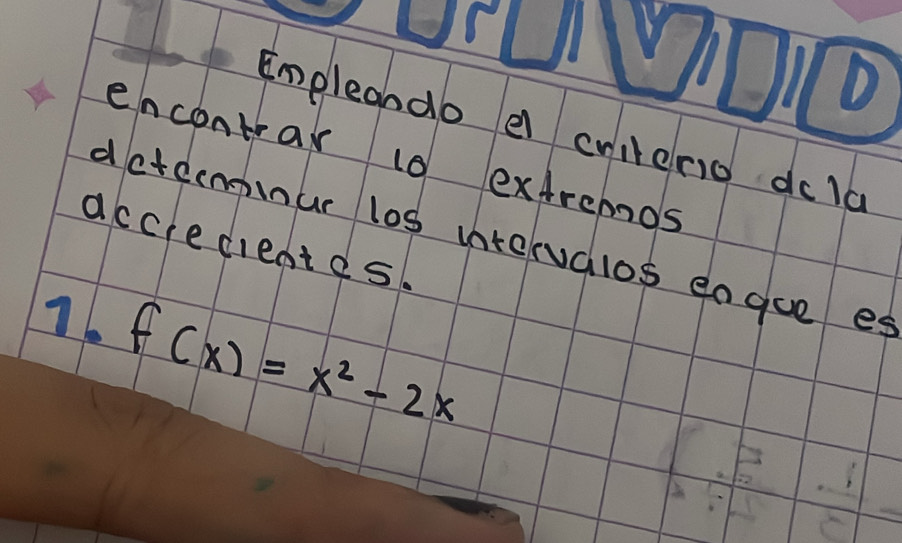 VID
Empleando el criterio de la
encontrar lo extremos
determinar los intervalos en que es
accrecientes.
1. f(x) = x² - 2x